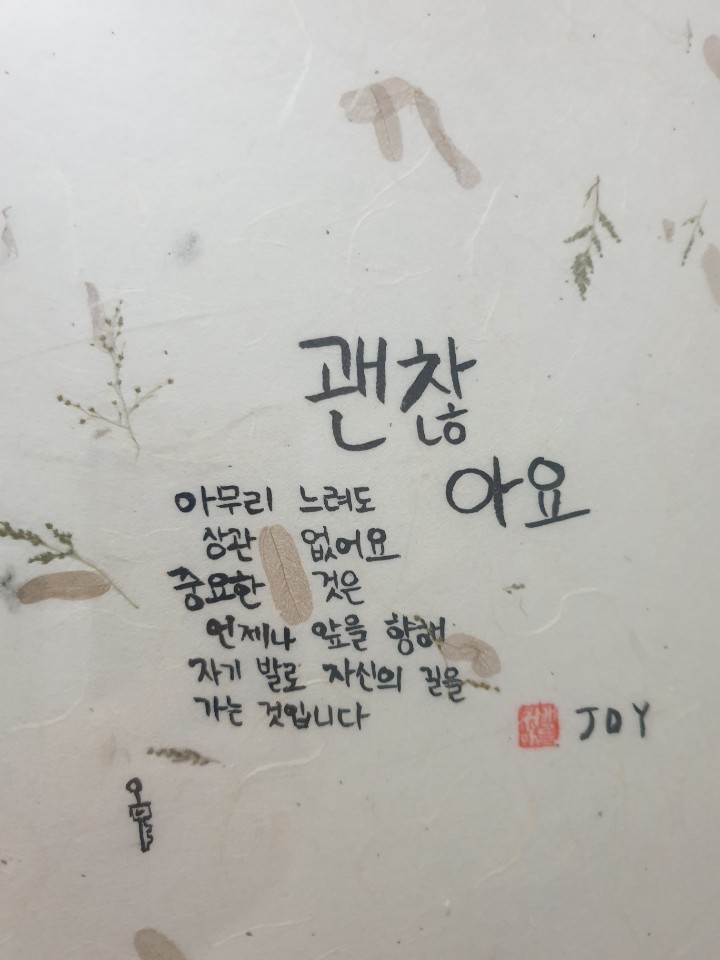 괜찮
아요
아무리 느려도
상관 없어요
중요한 것은
언제나 앞을 향해
자기 발로 자신의 길을
가는 것입니다
JOY